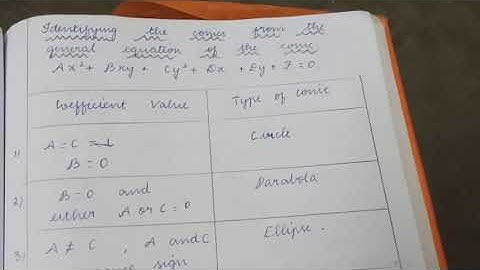 Identifying the conics from the
general equation of the conic
Ax² + Bxy + Cy² + Dx + Ey + F = 0.
Coefficient Value
Type of conic
1)
A = C = 1
B = 0
Circle
2)
B = 0 and
either A or C = 0
Parabola
3)
A ≠ C , A and C
sign
Ellipse.